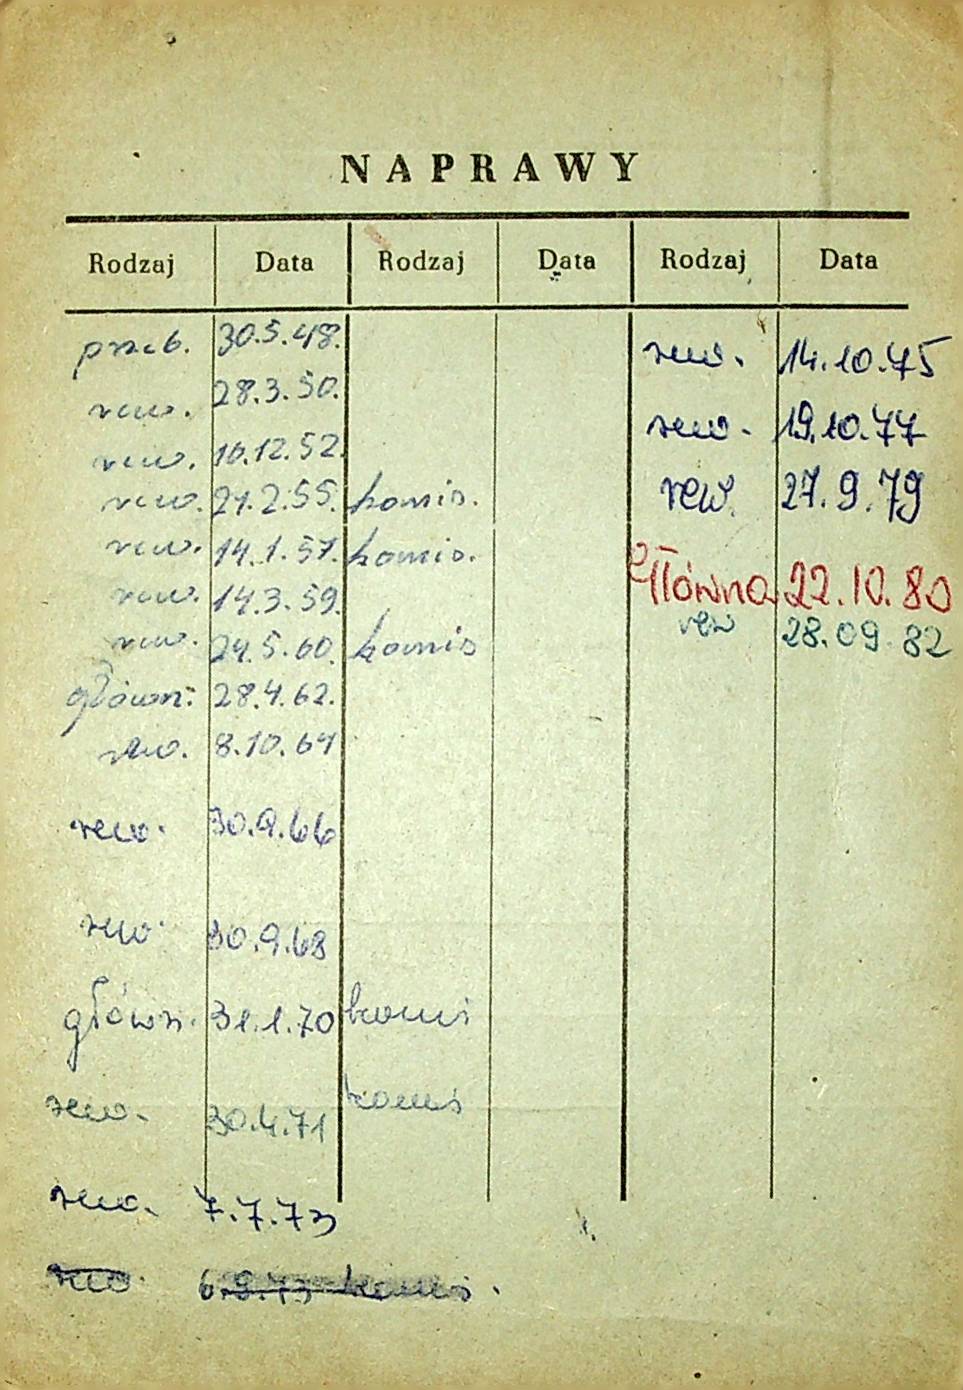 NAPRAWY
Rodzaj Data Rodzaj Data Rodzaj Data
przeb. 30.5.48.
rew. 28.3.50.
rew. 10.12.52.
rew. 21.2.55. komis.
rew. 14.1.57. komis.
rew. 14.3.59.
rew. 24.5.60. komis
główn: 28.4.62.
rew. 8.10.64
rew. 30.9.66
rew. 30.9.68
główn. 31.1.70 komis
rew. 30.4.71 komis
rew. 7.7.73
rew. 6.9.73 komis.
rew. 14.10.75
rew. 19.10.77
rew. 27.9.79
Główna 22.10.80
rew 28.09.82